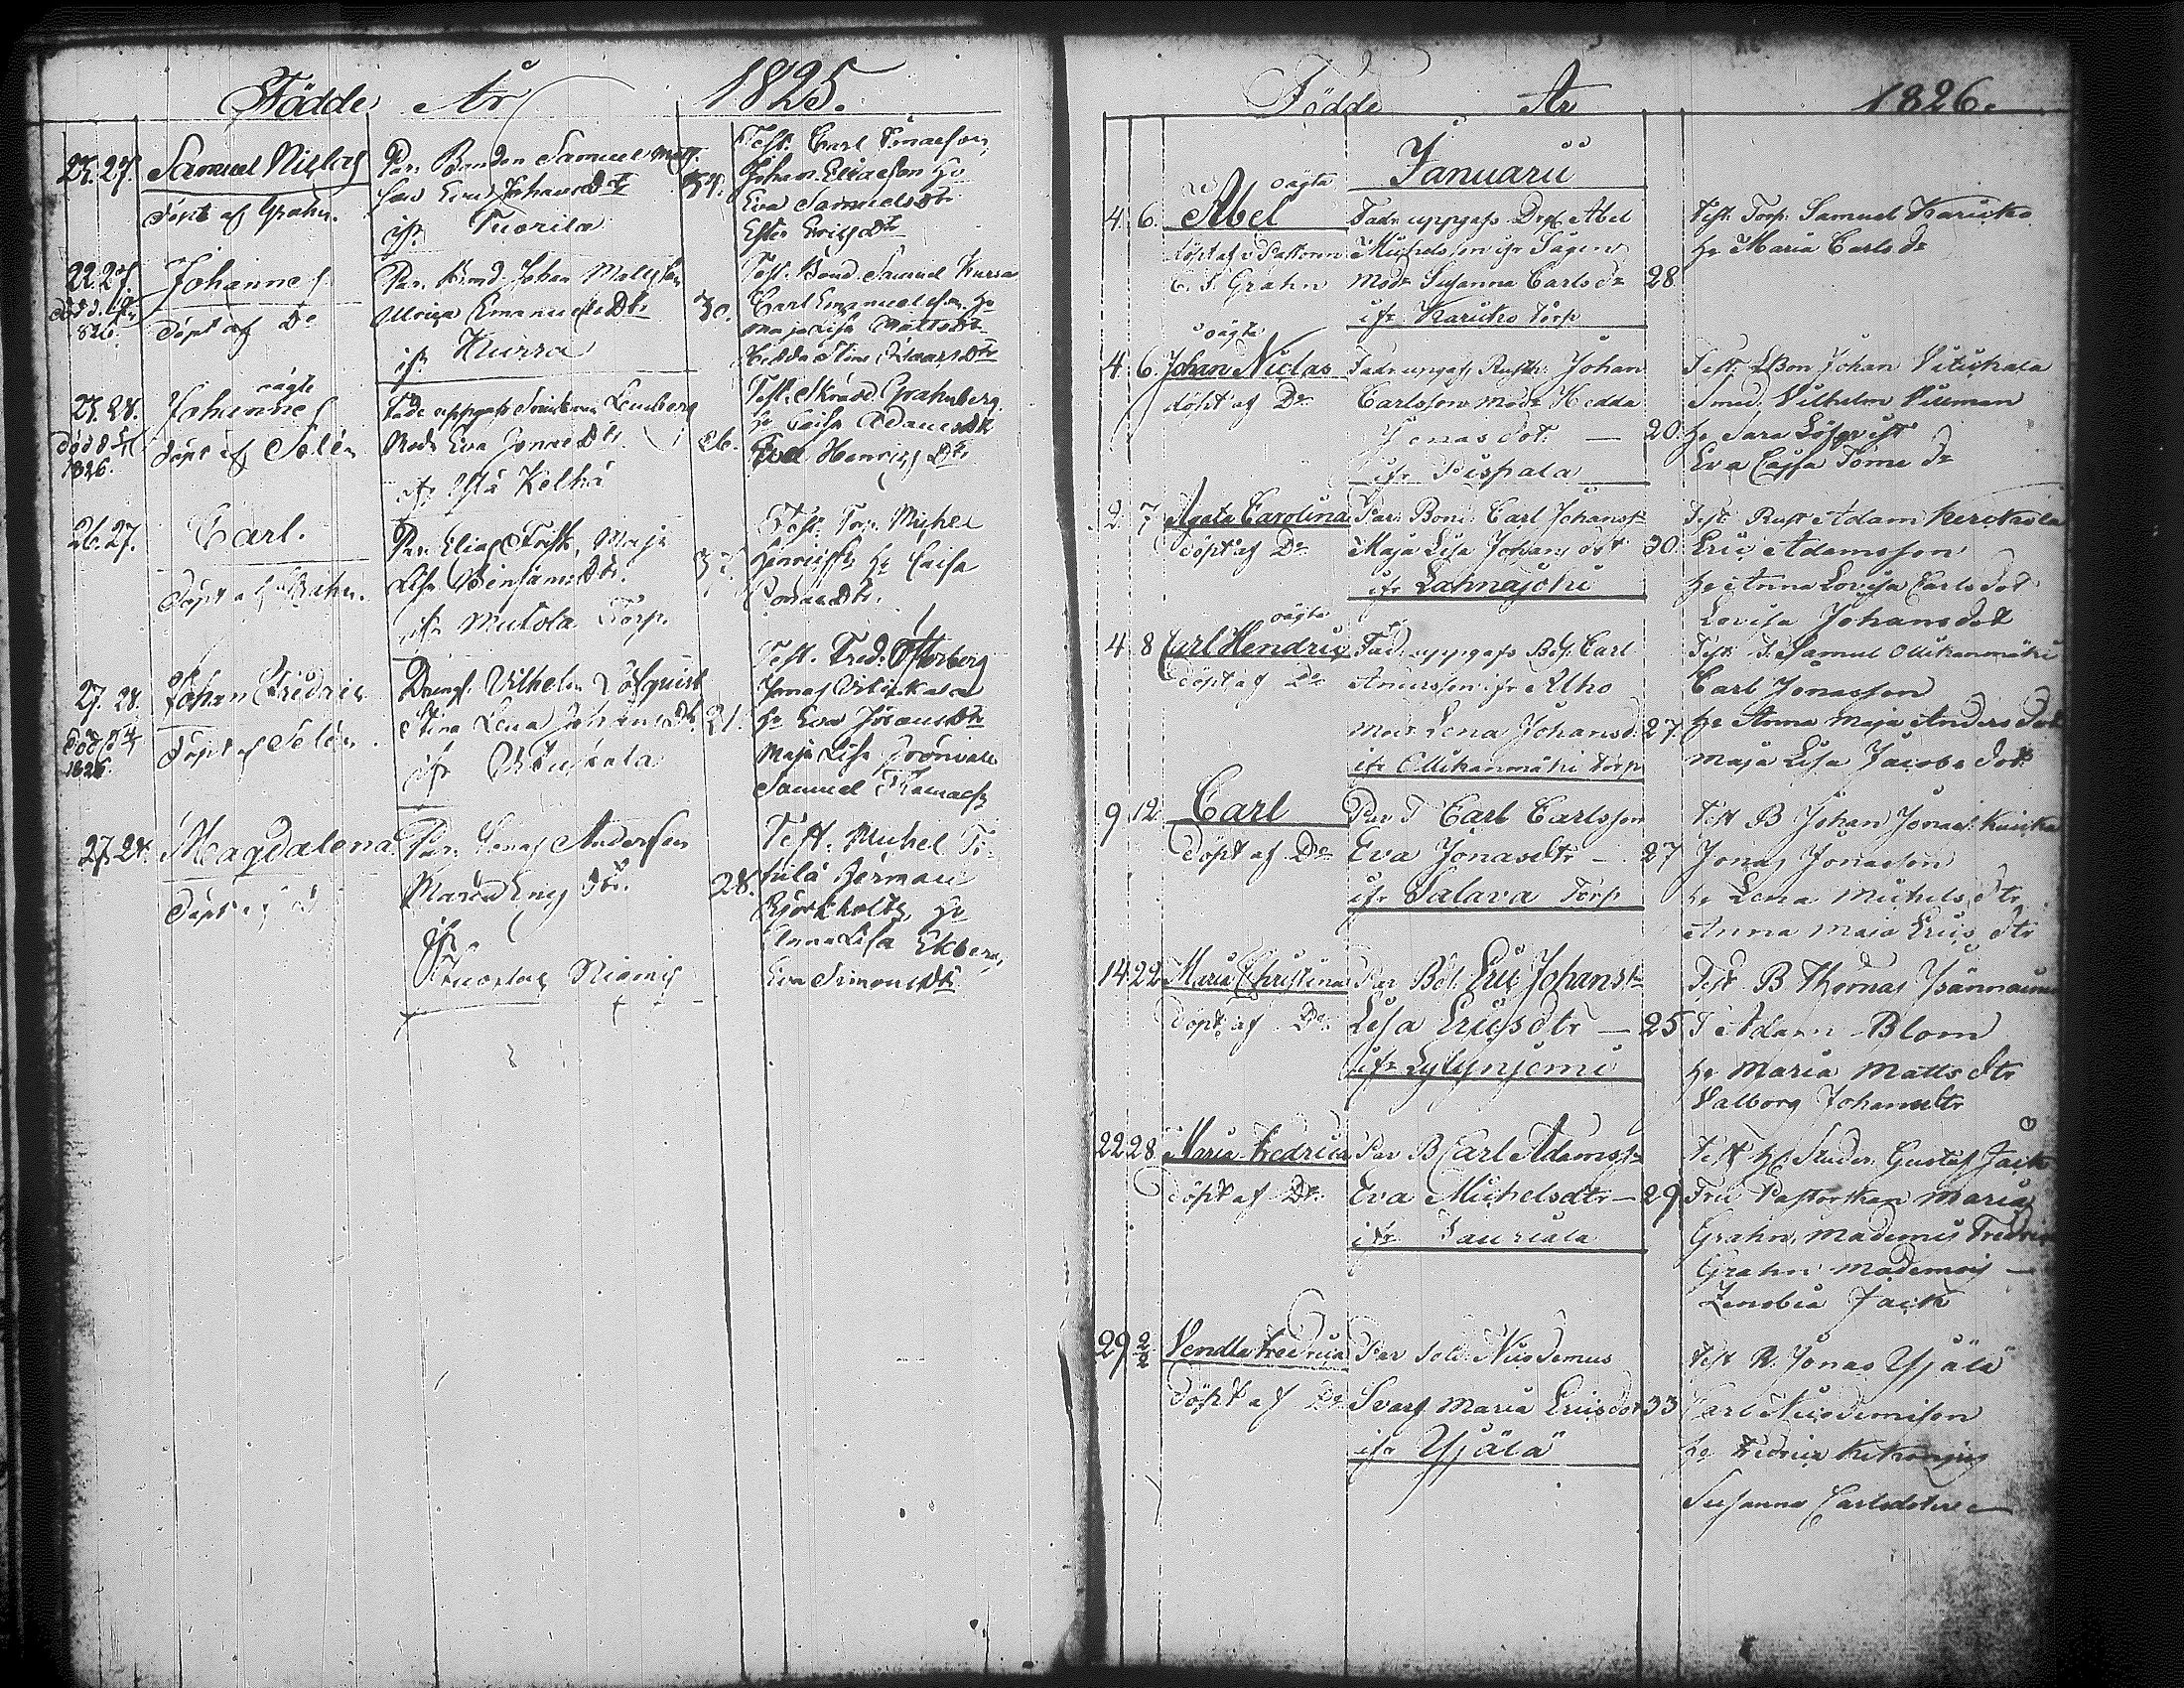 Födde År 1825.
25. 27. Samuel Niclas
döpt af Grahn.
Par. Bonden Samuel Matts.
Eva Johans Dtr
ifr. Tuorila
Test. Carl
Johan Eliaeson Hu
Eva Samuels Dtr
Ester Erichs Dtr
22. 27. Johannes
död d.
826.
döpt af Do
Par. Bond. Johan Mattsson
Ulrica Emanuels Dtr 30.
ifr. Kurra
Test. Bond. Samuel Kurra
Carl Emanuelsson Hu
Maja Lisa Mattsdtr
Hedda Stina
oägta
25. 28. Johannes
död d.
1826.
döpt af Selén
Fadr uppgafs Lemberg
Modr Eva Jonae Dtr. 26.
ifr Kelhä
Test. Grahnberg.
Hu Caisa Adams Dtr
Eva Henrichs Dtr
26. 27. Carl.
döpt af Grahn.
Par. Elias Frisk, Maja
Lisa Benjams Dtr.
ifr Mutola Torp.
Test. Torp. Michel
Henricss Hu Caisa
Jonae Dtr.
27. 28. Johan Fredric
död d
1826.
döpt af Selén
Dreng. Vilhelm Löfquist
Stina Lena Johans Dtr. 21.
ifr Vitikala
Test. Fred. Österberg
Jonas Vitikala
Hu Eva Johans Dtr
Maja Lisa Grönvall
Samuel Thomass
27. 28. Magdalena
döpt af
Par. Jonas Andersson
Maria Erics Dtr. 28.
ifr
Niemis
Test. Michel
Herman
Björkholtz, Hu
Anna Lisa Ekberg,
Eva Simons Dtr.
Födde År 1826.
Januarii
oägta
4. 6. Abel
döpt af v Pastoren
C. J. Grahn
Fadr uppgafs Drgl. Abel
Michelsson ifr Sagen
Modr Susanna Carlsdr 28
ifr Karicko torp
Test Torp. Samuel Karicko
hu Maria Carlsdr
oägta
4. 6. Johan Niclas
döpt af Do
Fadr uppgafs Rusth. Johan
Carlsson modr Hedda
Jonas dot. — 20.
ifr Pispala
Test. LBon Johan Vitikala
Smed. Vilhelm Villman
hu Sara Löfqvist
Eva Cajsa Toma dr
2. 7 Agata Carolina
döpt af Do
Par Bond. Carl Johanss
Maja Lisa Johans dot 30.
ifr Lannajoki
Test Rust Adam Kerckola
Eric Adamsson
hu Anna Lovisa Carls dot
Lovisa Johansdot
oägta
4 8 Carl Hendric
döpt af Do
Fadr uppgafs Carl
Anderssen ifr Alho
modr Lena Johansd. 27
ifr Ollikanmäki torp
Test. T. Samuel Ollikanmäki
Carl Jonasson
hu Anna Maja Anders dot
Maja Lisa Jacobs dot.
9 12 Carl
döpt af Do
Par T Carl Carlsson
Eva Jonasdtr — 27
ifr Salava Torp
Test B Johan Jonas
Jonas Jonasson
hu Lena Michelsdtr
Anna Maja Erics dtr
14 22 Maria Christina
döpt af Do
Par Bol. Eric Johanss
Lisa Ericsdtr — 25
ifr Lylynjemi
Test B Thomas
T Adam Blom
hu Maria Matts dtr
Valborg Johansdtr
22 28 Maria Fredrica
döpt af Do
Par B Carl Adamss
Eva Michelsdtr — 29
ifr Tauriala
Test Hr Studer. Gustaf Jack
Fru Pastorskan Maria
Grahn, Mademois Fredrica
Grahn Mademois —
Zenobia Jack
29 2/2 Vendla Fredrica
döpt af Do
Par Sold. Nicodemus
Svarf Maria Ericsdot 33
ifr Yjälä
Test R. Jonas Yjälä
Carl Nicodemison
hu Fredrica
Susanna Carlsdotter